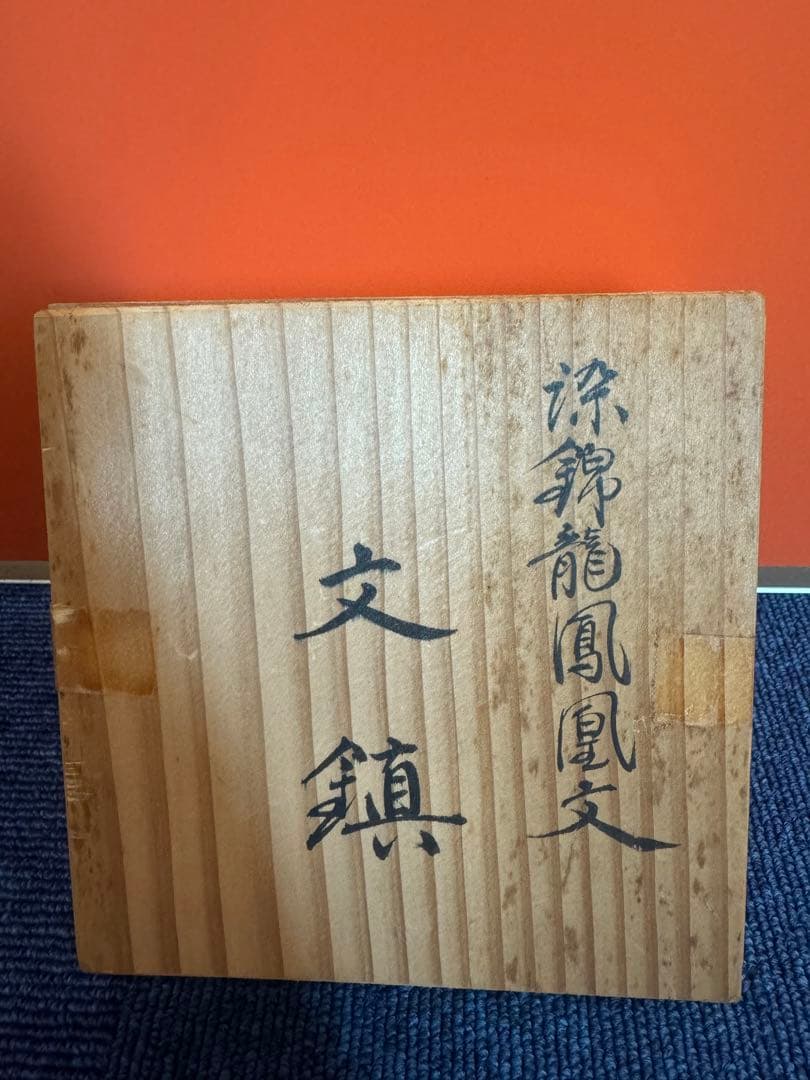 染錦龍鳳凰文
文鎮